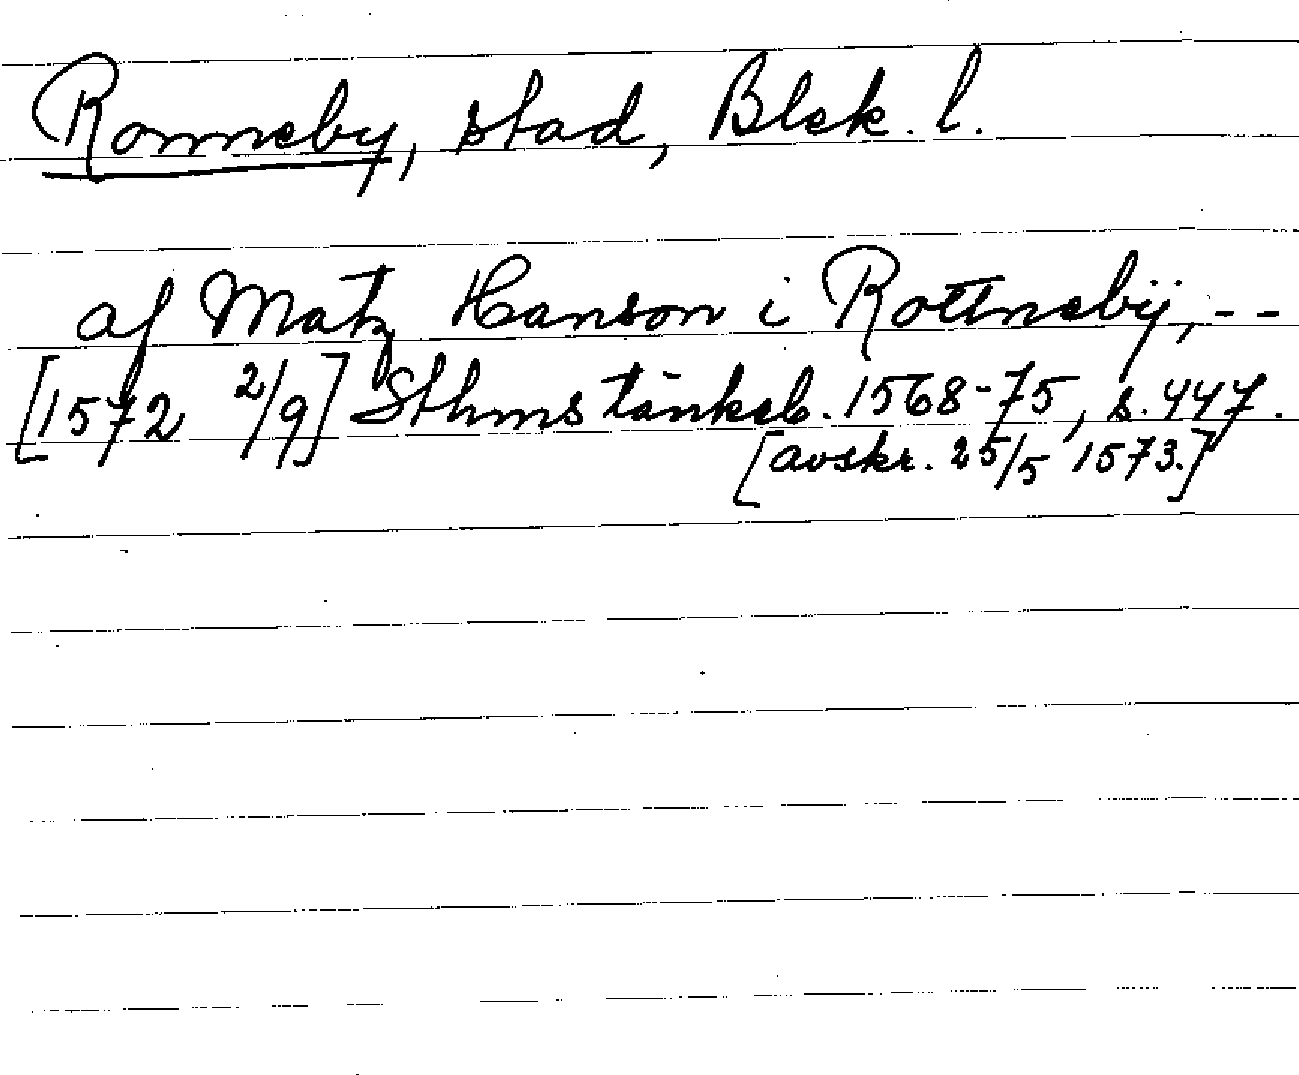 Ronneby, stad, Blek. l.
af Matz Hanson i Rottnebÿ, --
[1572 2/9] Sthms tänkeb. 1568-75, s. 447.
[avskr. 25/5 1573.]